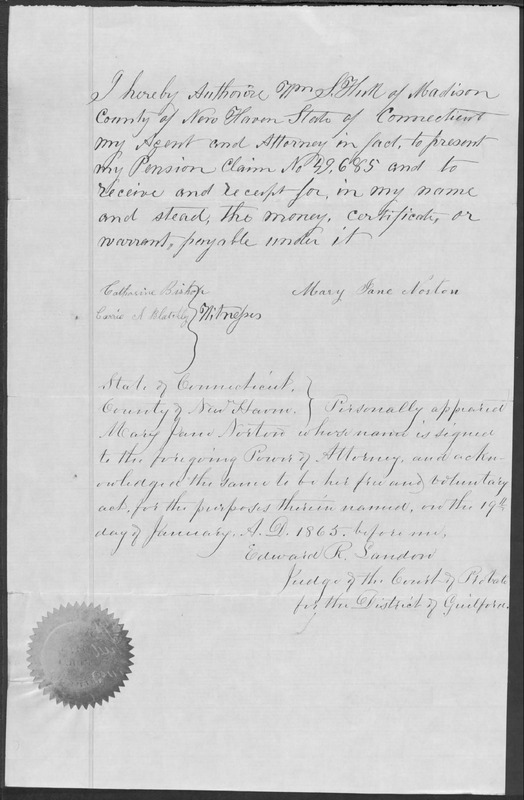 I hereby Authorize Wm S. Hull of Madison
County of New Haven State of Connecticut
my Agent and Attorney in fact, to present
my Pension Claim No 49,685 and to
receive and receipt for, in my name
and stead, the money, certificate, or
warrant, payable under it
Catharine Bishop Mary Jane Norton
Carrie A Blatchley Witnesses
State of Connecticut,
County of New Haven. Personally appeared
Mary Jane Norton whose name is signed
to the foregoing Power of Attorney, and ackn-
owledged the same to be her free and voluntary
act, for the purposes therein named, on the 19th
day of January. A.D. 1865. before me,
Edward R. Landon
Judge of the Court of Probate
for the District of Guilford.